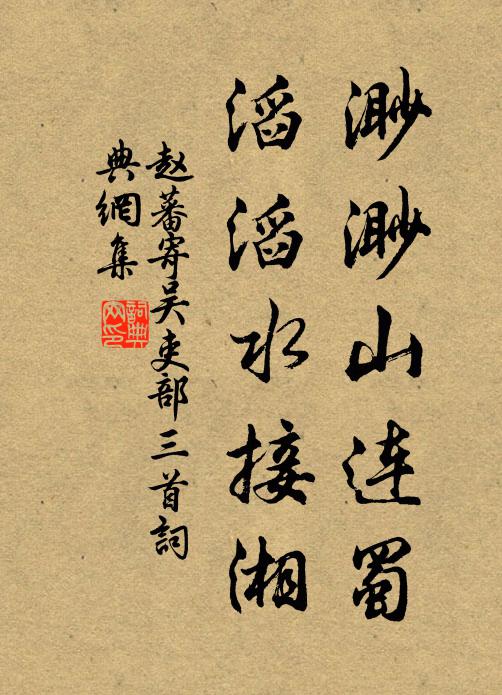 渺渺山连蜀
滔滔水接湘
赵蕃寄吴吏部三首詞
典網集
詞典网印